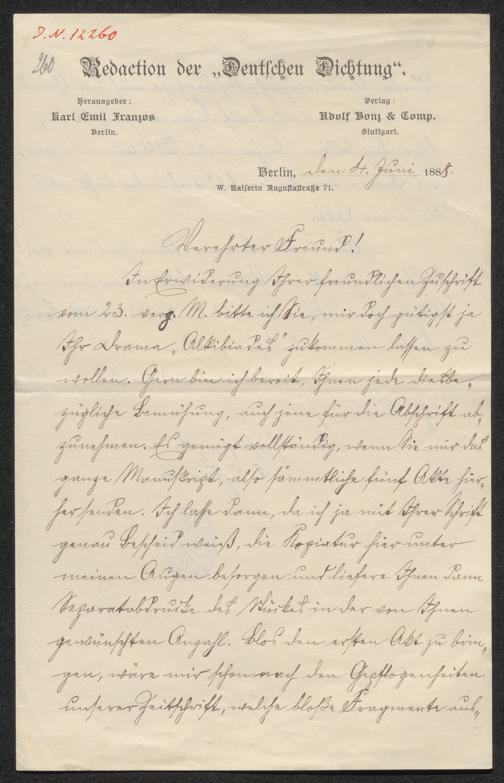 J.N. 12260
260
Redaction der „Deutschen Dichtung“.
Herausgeber:
Karl Emil Franzos
Berlin.
Verlag:
Adolf Bonz & Comp.
Stuttgart.
Berlin, den 4. Juni 1888.
W. Kaiserin Augustastraße 71.
Verehrter Freund!
In Erwiderung Ihrer freundlichen Zuschrift
vom 23. verg. M. bitte ich Sie, mir doch gütigst ja
Ihr Drama „Alkibiades“ zukommen lassen zu
wollen. Gern bin ich bereit, Ihnen jede diesbe-
zügliche Bemühung, auch jene für die Abschrift ab-
zunehmen. Es genügt vollständig, wenn Sie mir das
ganze Manuskript, also sämmtliche fünf Akte hier-
her senden. Ich lasse dann, da ich ja mit Ihrer Schrift
genau Bescheid weiß, die Kopiatur hier unter
meinen Augen besorgen und liefere Ihnen dann
Separatabdrucke des Stückes in der von Ihnen
gewünschten Anzahl. Blos den ersten Akt zu brin-
gen, wäre mir schon nach den Gepflogenheiten
unserer Zeitschrift, welche bloße Fragmente aus-